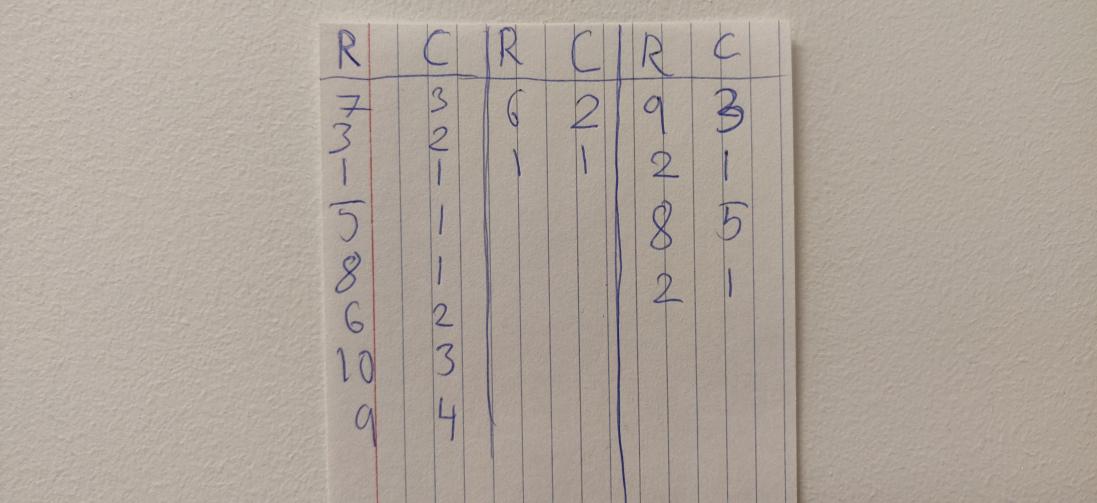 R C R C R C
7 3 6 2 9 3
3 2 1 1 2 1
1 1 8 5
5 1 2 1
8 1
6 2
10 3
9 4